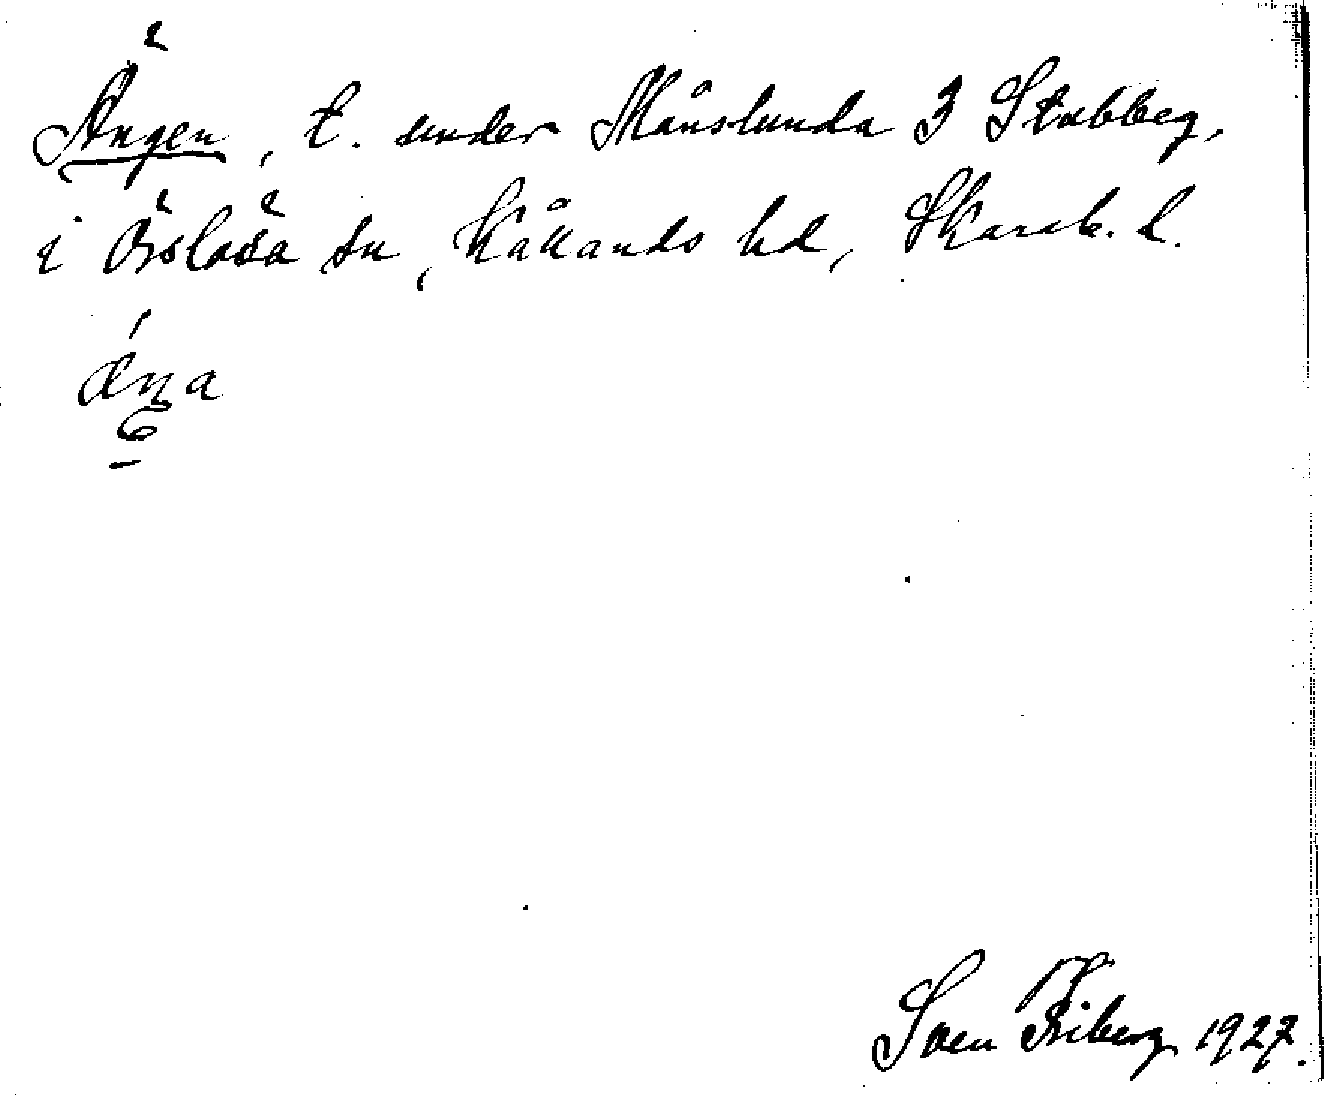 Ängen, t. under Månslunda 3 Stubbeg.
i Örslösa sn, Kållands hd, Skarab. l.
ǽŋa
Sven Friberg 1927.